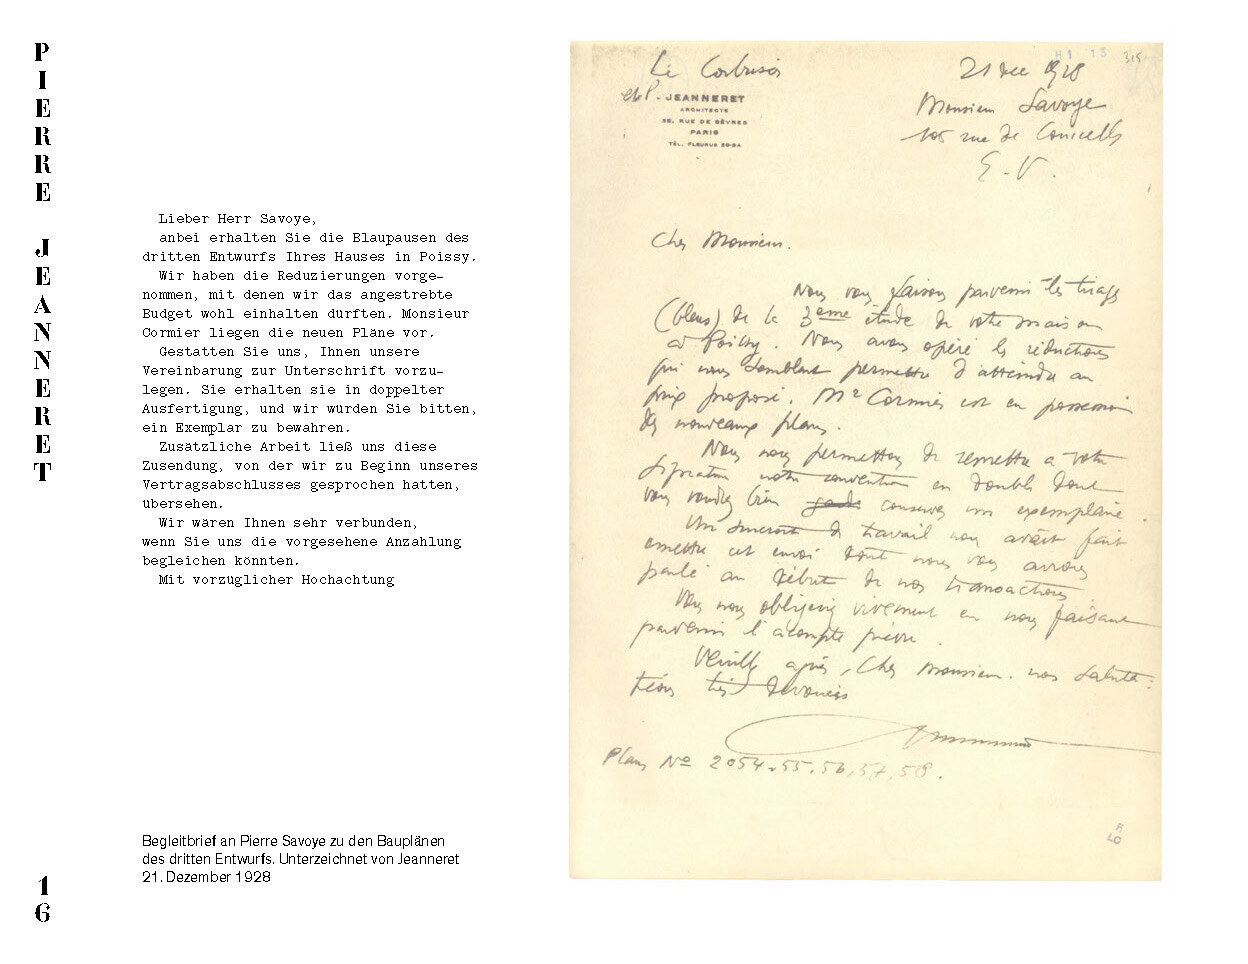 PIERRE JEANNERET
Lieber Herr Savoye,
anbei erhalten Sie die Blaupausen des
dritten Entwurfs Ihres Hauses in Poissy.
Wir haben die Reduzierungen vorge-
nommen, mit denen wir das angestrebte
Budget wohl einhalten durften. Monsieur
Cormier liegen die neuen Pläne vor.
Gestatten Sie uns, Ihnen unsere
Vereinbarung zur Unterschrift vorzu-
legen. Sie erhalten sie in doppelter
Ausfertigung, und wir wurden Sie bitten,
ein Exemplar zu bewahren.
Zusätzliche Arbeit ließ uns diese
Zusendung, von der wir zu Beginn unseres
Vertragsabschlusses gesprochen hatten,
ubersehen.
Wir wären Ihnen sehr verbunden,
wenn Sie uns die vorgesehene Anzahlung
begleichen könnten.
Mit vorzuglicher Hochachtung
Begleitbrief an Pierre Savoye zu den Bauplänen
des dritten Entwurfs. Unterzeichnet von Jeanneret
21. Dezember 1928
16
H1 13 315
Le Corbusier
et P. JEANNERET
ARCHITECTE
35, RUE DE SÈVRES
PARIS
21 dec 1928
Monsieur Savoye
105 rue de Courcelles
E.V.
Cher Monsieur.
Nous vous faisons parvenir les tirages
(bleus) de la 3ème étude de votre maison
à Poissy. Nous avons opéré les réductions
qui nous semblent permettre d'atteindre au
prix proposé. Mr Cormier est en possession
des nouveaux plans.
Nous nous permettons de remettre à votre
signature notre convention en double dont
vous voudrez bien garder conserver un exemplaire.
Un surcroit de travail nous avait fait
omettre cet envoi dont nous vous avions
parlé au début de nos transactions.
Vous nous obligeriez vivement en nous faisant
parvenir l'acompte prévu.
Veuillez agréer, Cher Monsieur. nos saluta-
tions très dévouées
Plans No 2054.55.56,57,58.